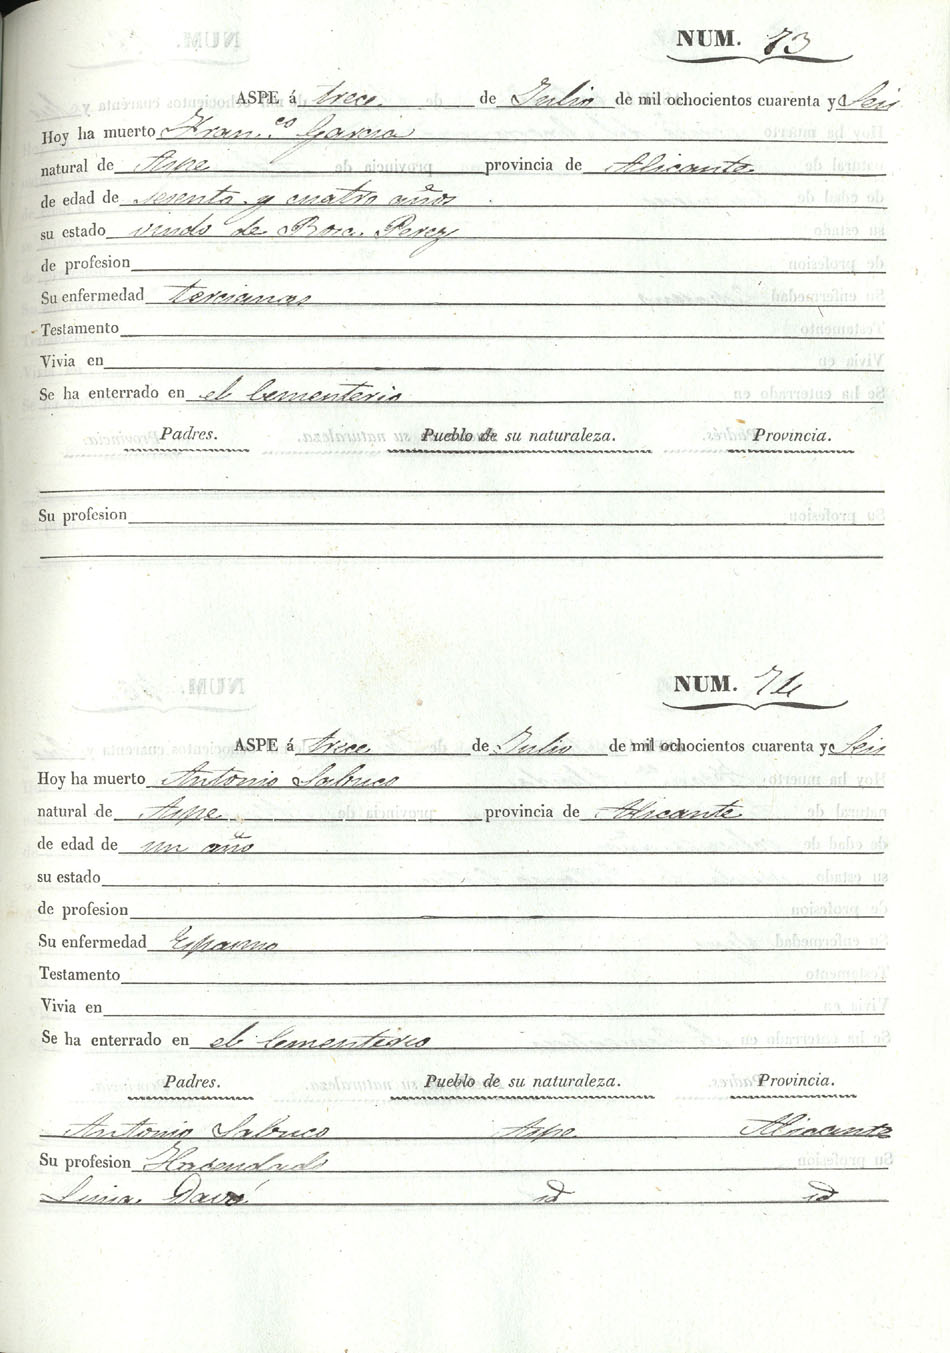 NUM. 73
ASPE á trece de Julio de mil ochocientos cuarenta y Seis
Hoy ha muerto Fran.co Garcia
natural de Aspe provincia de Alicante
de edad de sesenta y cuatro años
su estado viudo de Rosa Perez
de profesion
Su enfermedad tercianas
Testamento
Vivia en
Se ha enterrado en el Cementerio
Padres. Pueblo de su naturaleza. Provincia.
Su profesion
NUM. 74
ASPE á trece de Julio de mil ochocientos cuarenta y Seis
Hoy ha muerto Antonio Sabuco
natural de Aspe provincia de Alicante
de edad de un año
su estado
de profesion
Su enfermedad Espasmo
Testamento
Vivia en
Se ha enterrado en el Cementerio
Padres. Pueblo de su naturaleza. Provincia.
Antonio Sabuco Aspe Alicante
Su profesion Hacendado
Davó id id